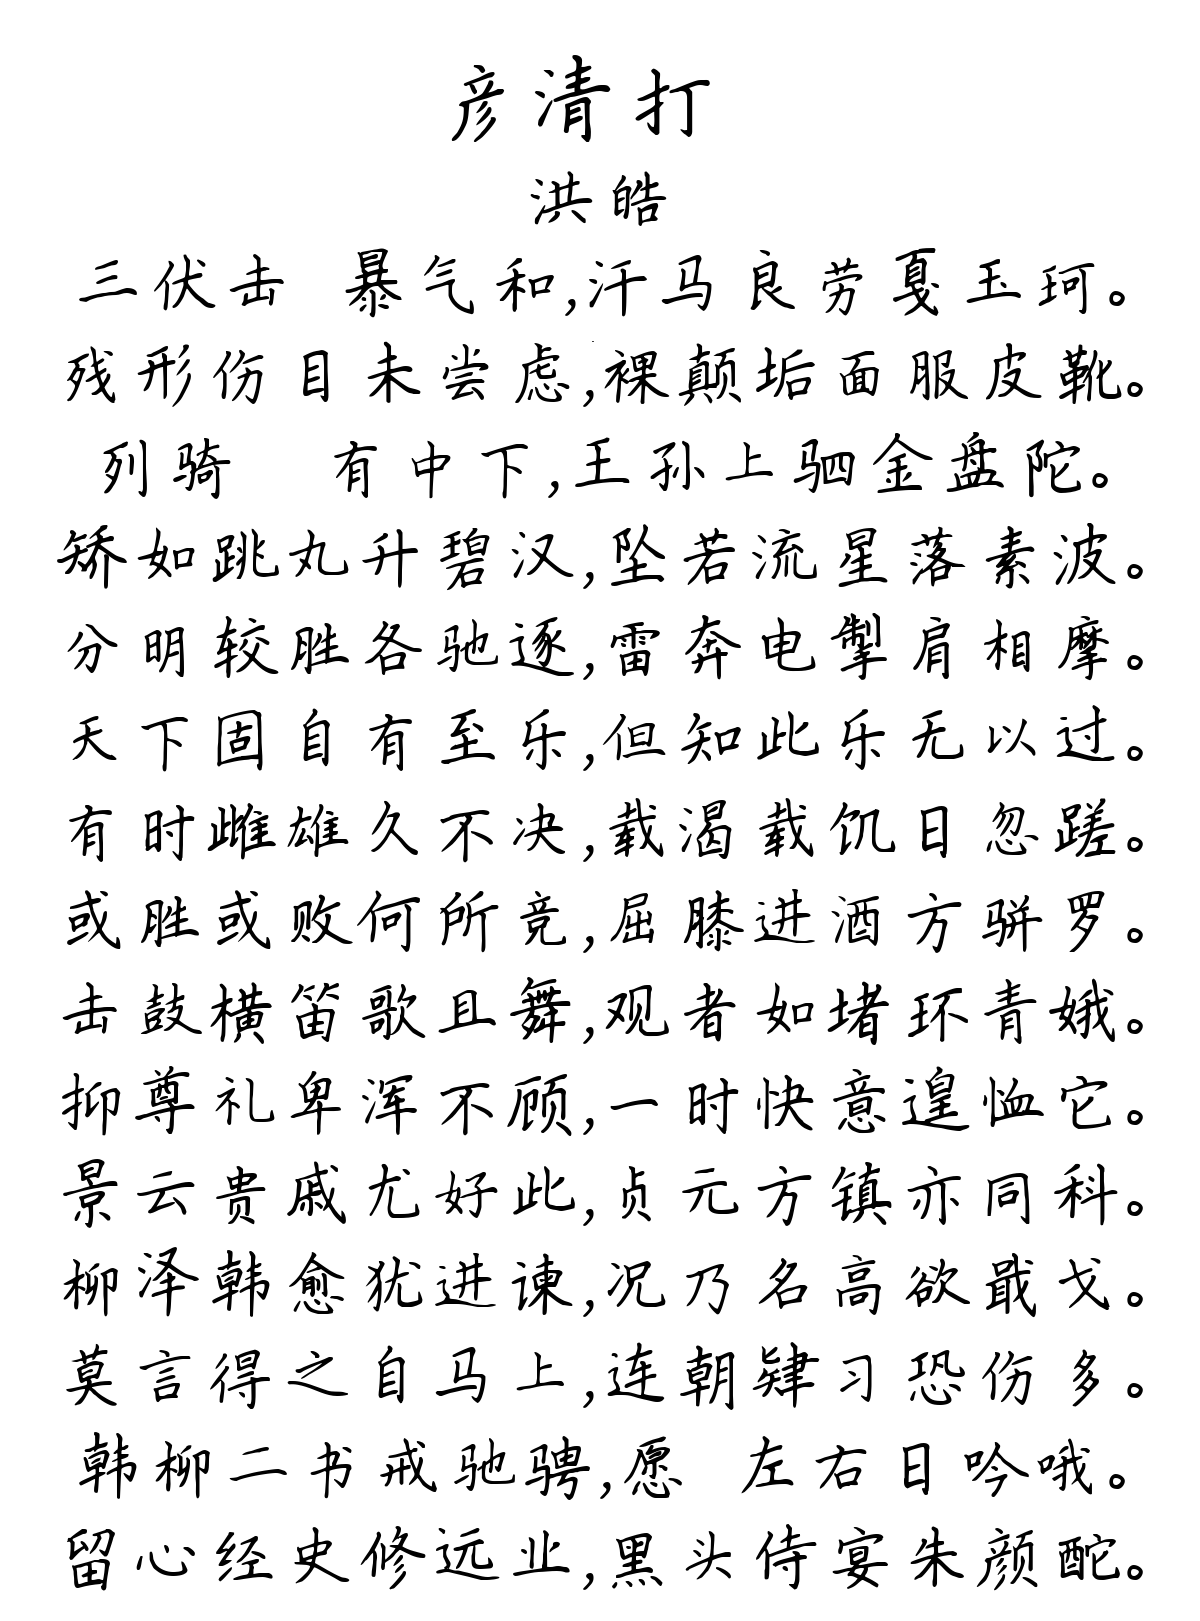 彦清打
洪皓
三伏击 暴气和,汗马良劳戛玉珂。
残形伤目未尝虑,裸颠垢面服皮靴。
列骑 有中下,王孙上驷金盘陀。
矫如跳丸升碧汉,坠若流星落素波。
分明较胜各驰逐,雷奔电掣肩相摩。
天下固自有至乐,但知此乐无以过。
有时雌雄久不决,载渴载饥日忽蹉。
或胜或败何所竞,屈膝进酒方骈罗。
击鼓横笛歌且舞,观者如堵环青娥。
抑尊礼卑浑不顾,一时快意遑恤它。
景云贵戚尤好此,贞元方镇亦同科。
柳泽韩愈犹进谏,况乃名高欲戢戈。
莫言得之自马上,连朝肄习恐伤多。
韩柳二书戒驰骋,愿 左右日吟哦。
留心经史修远业,黑头侍宴朱颜酡。